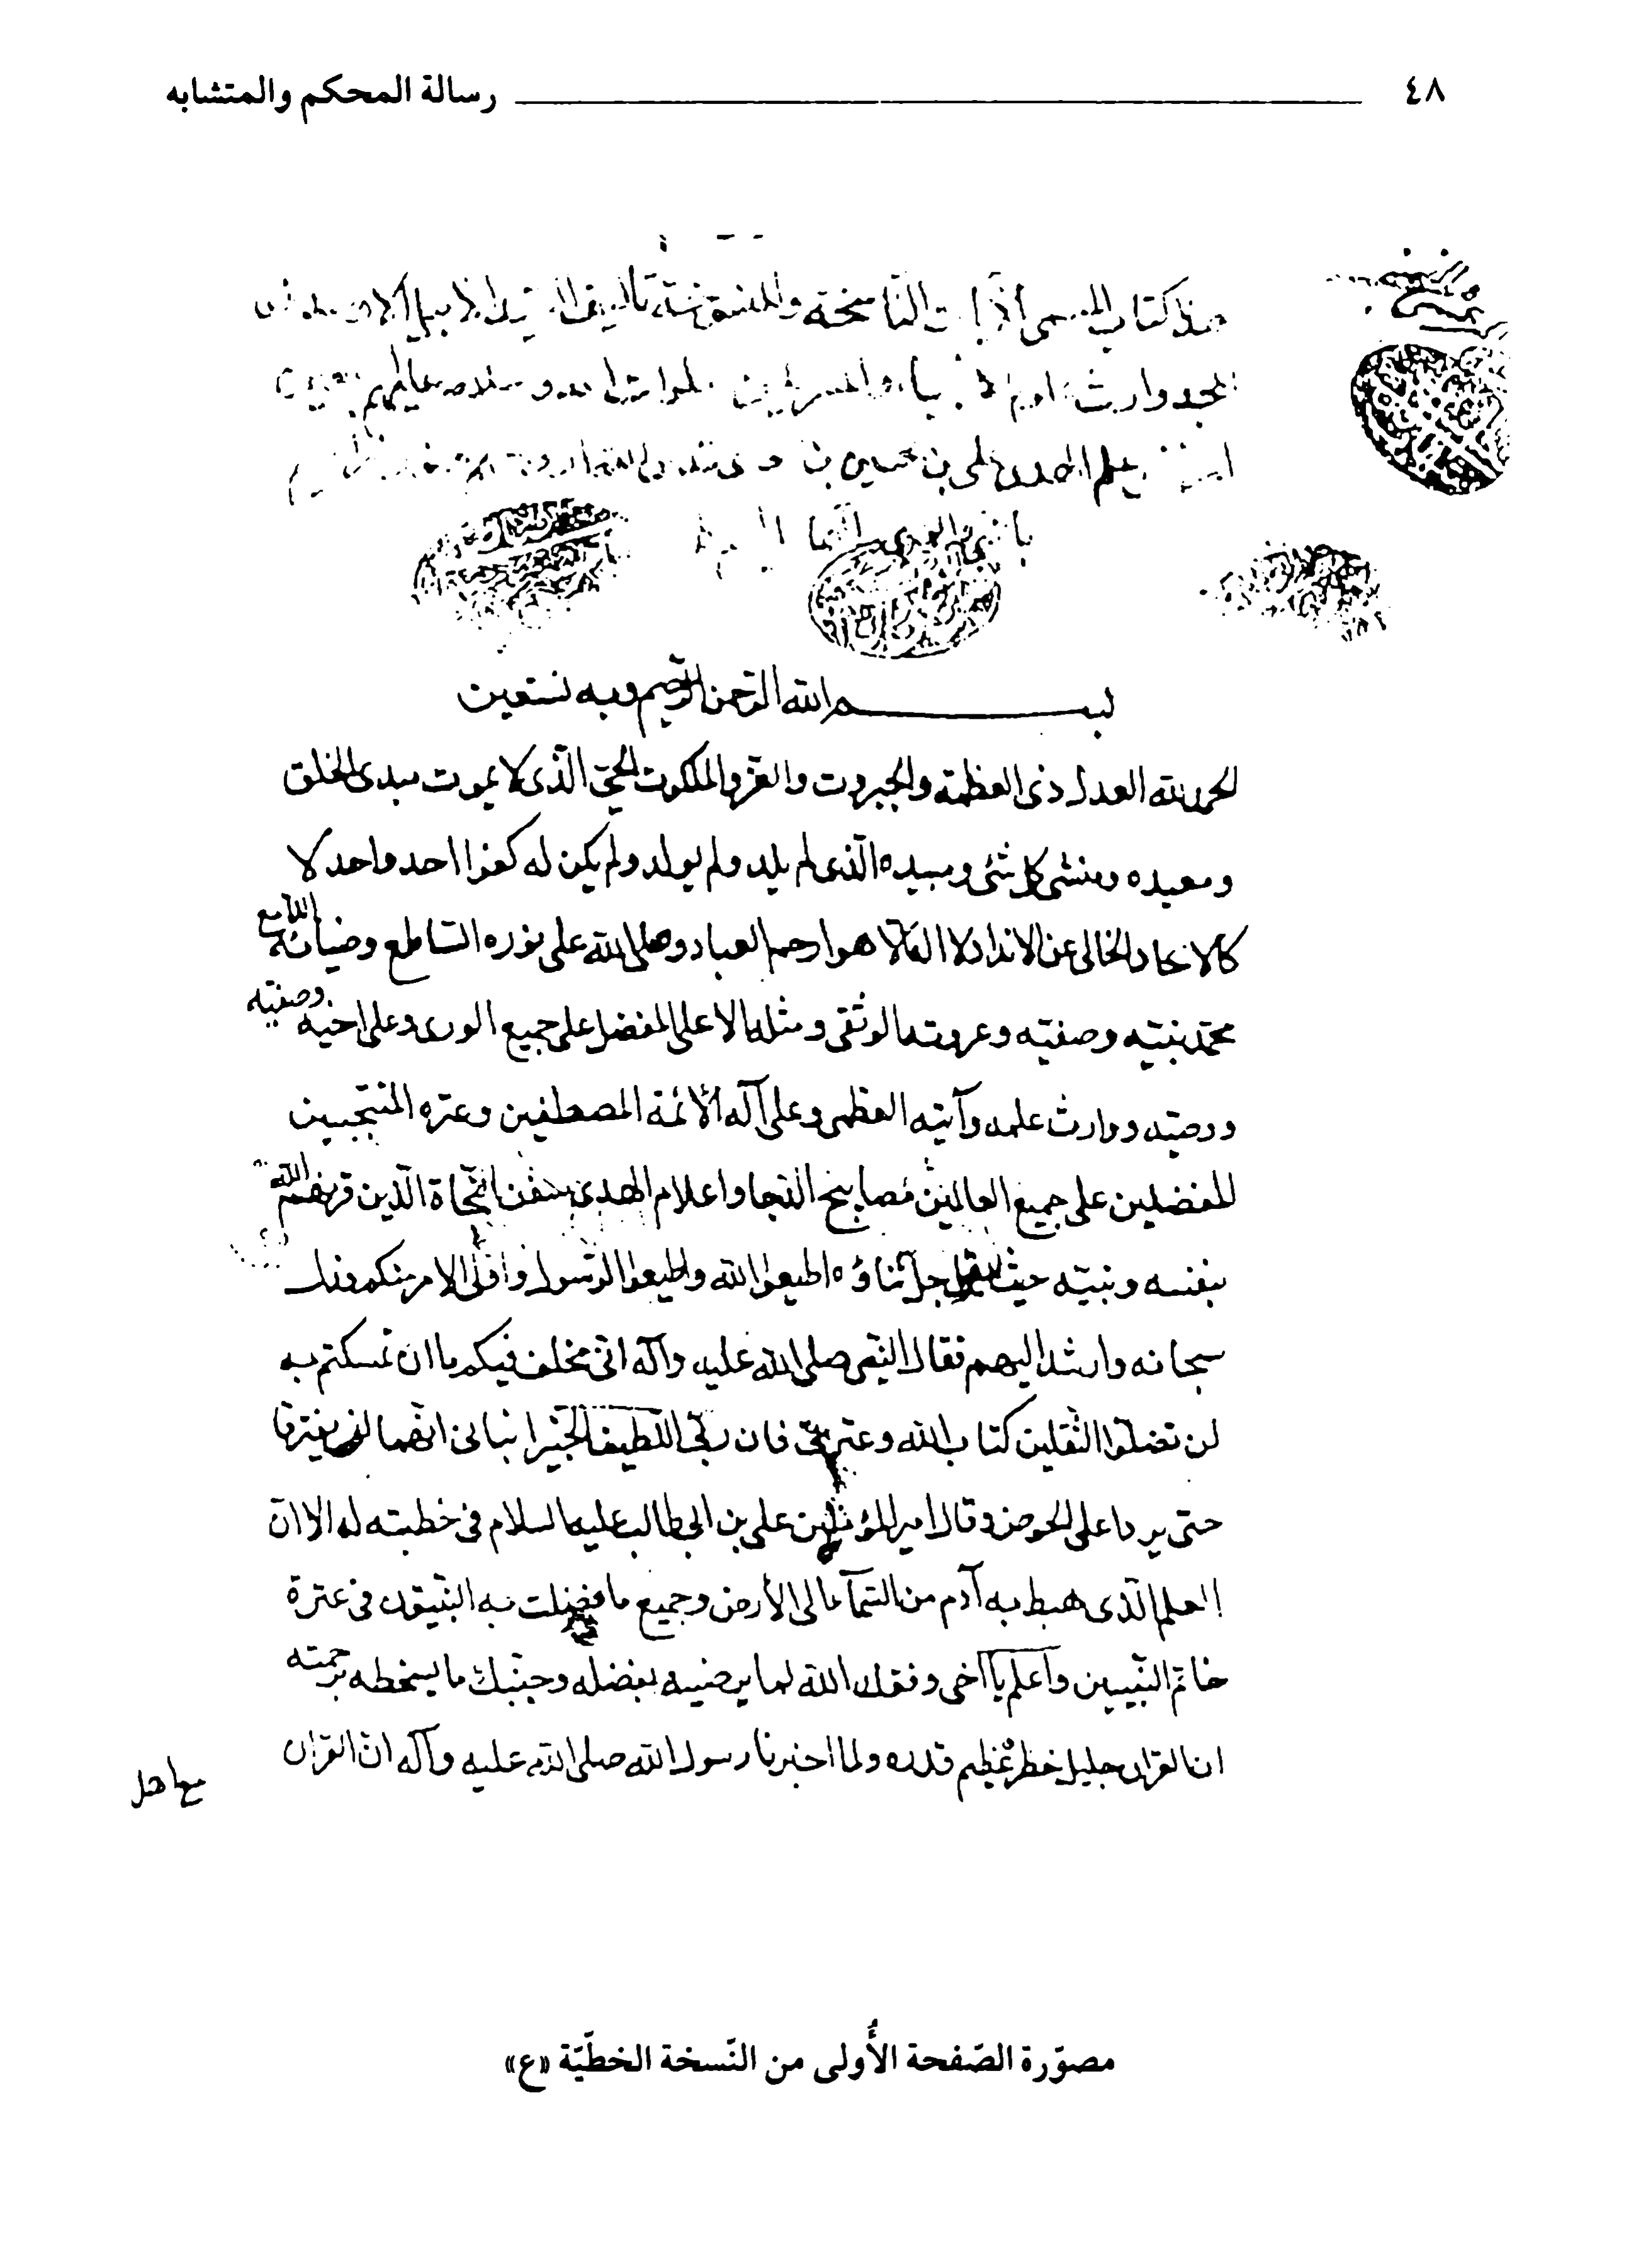 ٤٨ رسالة المحكم والمتشابه
هذا كتاب الناسخة والمنسوخة تأليف
وارث
علم الهدى على بن حسين بن
بسم الله الرّحمن الرّحيم وبه نستعين
الحمد لله العدل ذى العظمة والجبروت والعزّ والملكوت الحىّ الّذى لا يموت مبدئ الخلق
ومعيده ومنشئ كل شئ ومبيده الّذى لم يلد ولم يولد ولم يكن له كفوا احد واحد لا
كالاحاد الخالى عن الانداد لا اله الّا هو ارحم العباد وصلى الله على نوره السّاطع وضيائه اللامع
محمّد نبيّه وصفيّه وعروته الوثقى ومثله الاعلى المفضل على جميع الورى وعلى اخيه وصفيّه
ووصيّه ووارث علمه وآيته العظمى وعلى آله الأئمة المصطفين وعترته المنتجبين
المفضلين على جميع العالمين مصابيح الدّجا واعلام الهدى وسفن النّجاة الّذين قرنهم الله
بنفسه ونبيّه حيث يقول جلّ ثناؤه اطيعوا الله واطيعوا الرّسول واولى الامر منكم فدل
سبحانه وارشد اليهم فقال النّبى صلى الله عليه وآله انّى مخلف فيكم ما ان تمسكتم به
لن تضلّوا الثّقلين كتاب الله وعترتى فان ربّى اللّطيف الخبير انبأنى انّهما لن يفترقا
حتى يردا على الحوض وقال امير المؤمنين على بن ابى طالب عليه السلام فى خطبته له الا انّ
العلم الّذى هبط به آدم من السّمآء الى الأرض وجميع ما فضلت به النّبيّون فى عترة
خاتم النّبيين واعلم يا اخى وفقك الله لما يرضيه بفضله وجنّبك ما يسخطه برحمته
ان القران جليل خطره عظيم قدره ولما اخبرنا رسول الله صلى الله عليه وآله انّ القران
مع اهل
مصوّرة الصّفحة الأُولى من النّسخة الخطّيّة «ع»